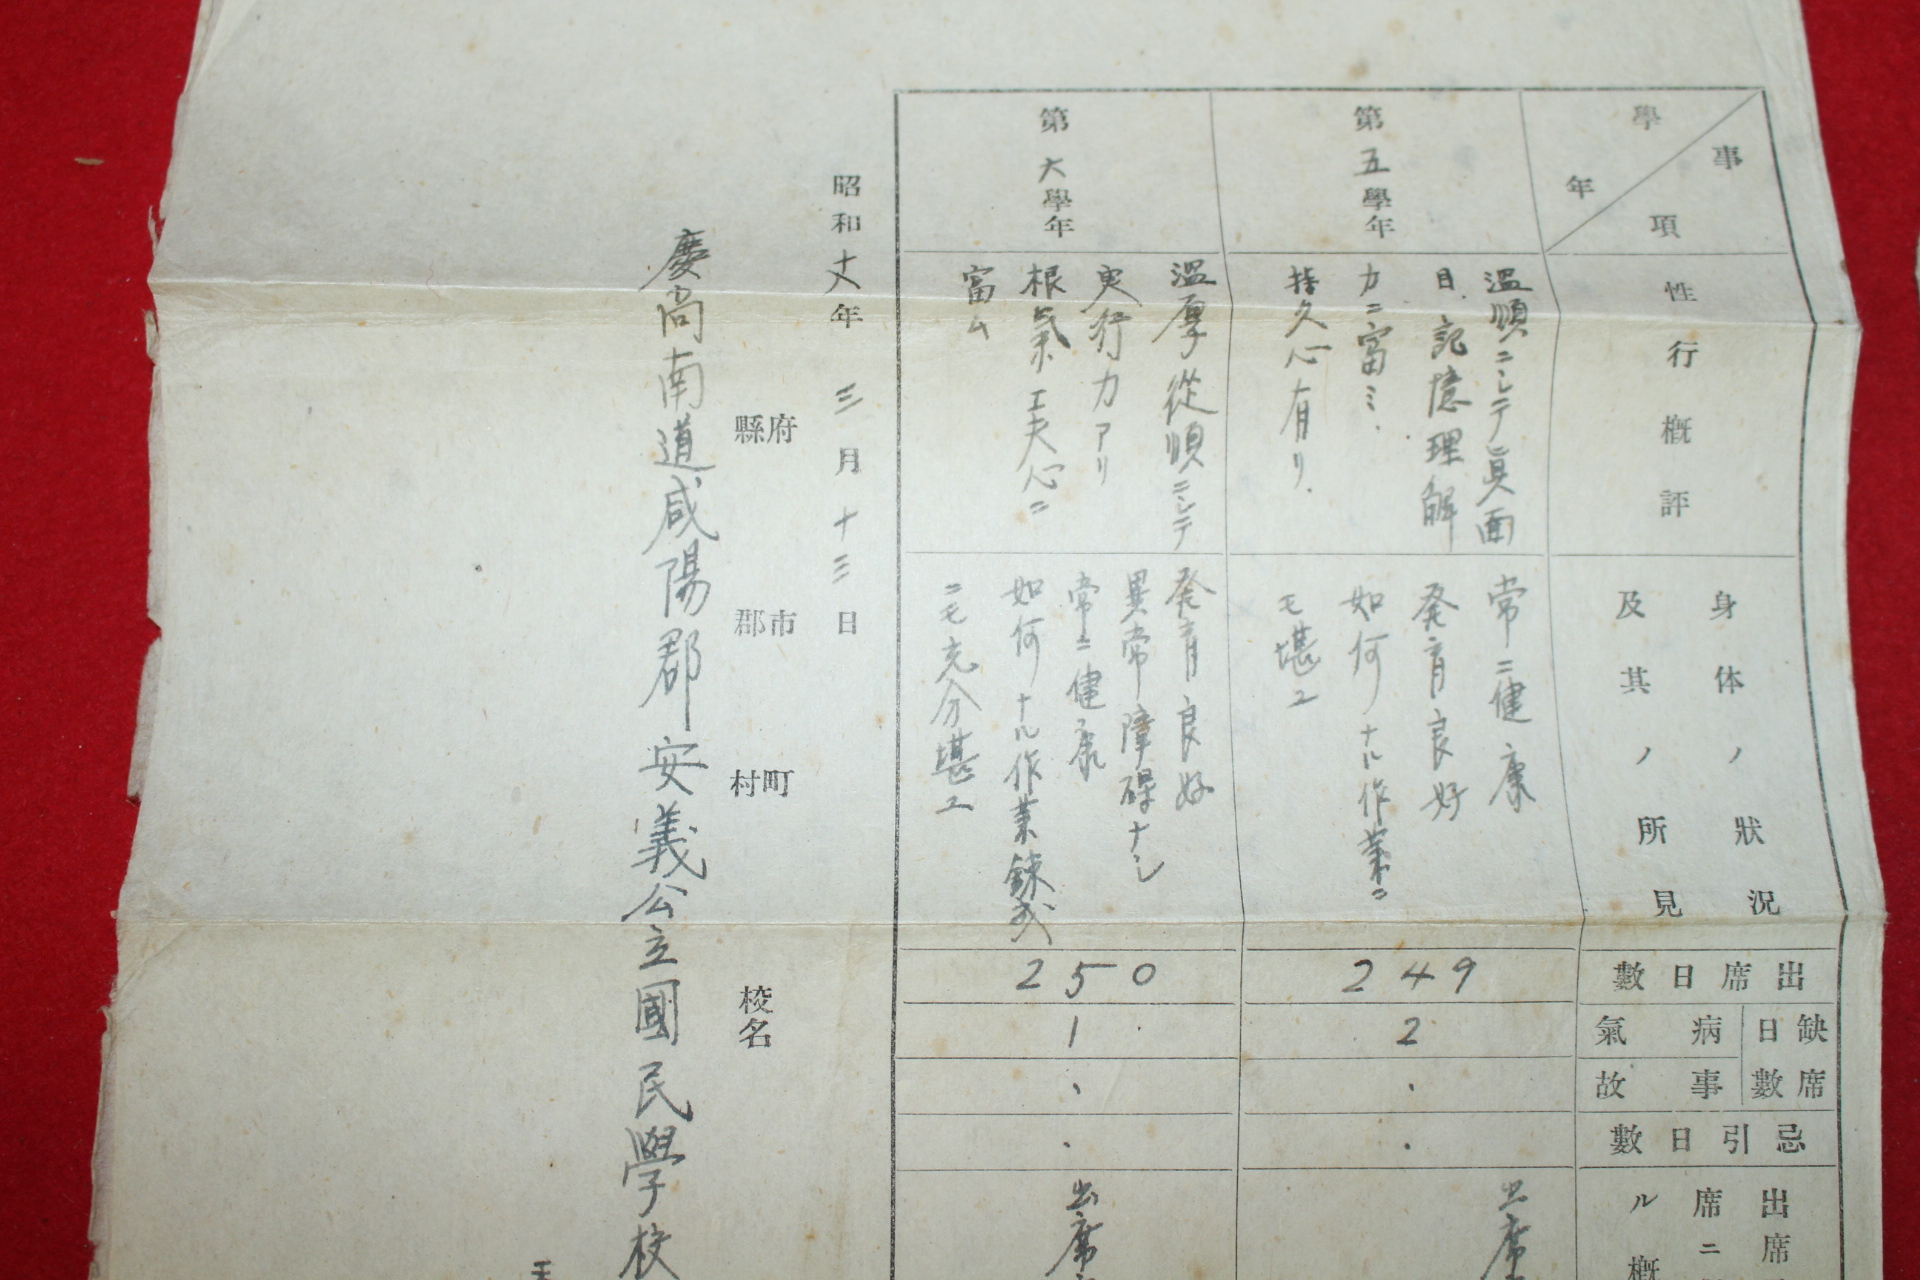 學年
事項
性行概評
身体ノ狀況
及其ノ所見
出席日數
缺席日數
病氣
事故
忌引日數
出席
席ニ
ル概
第五學年
温順ニシテ眞面
目、記憶理解
力ニ富ミ、
持久心有リ.
常ニ健康
発育良好
如何ナル作業ニ
モ堪エ
249
2
出席
第六學年
温厚從順ニシテ
実行力アリ
根氣工夫心ニ
富ム
発育良好
異常障碍ナシ
常ニ健康
如何ナル作業錬成
ニモ充分堪エ
250
1
出席
昭和十八年三月十三日
府縣
市郡
町村
校名
慶尚南道咸陽郡安義公立國民學校